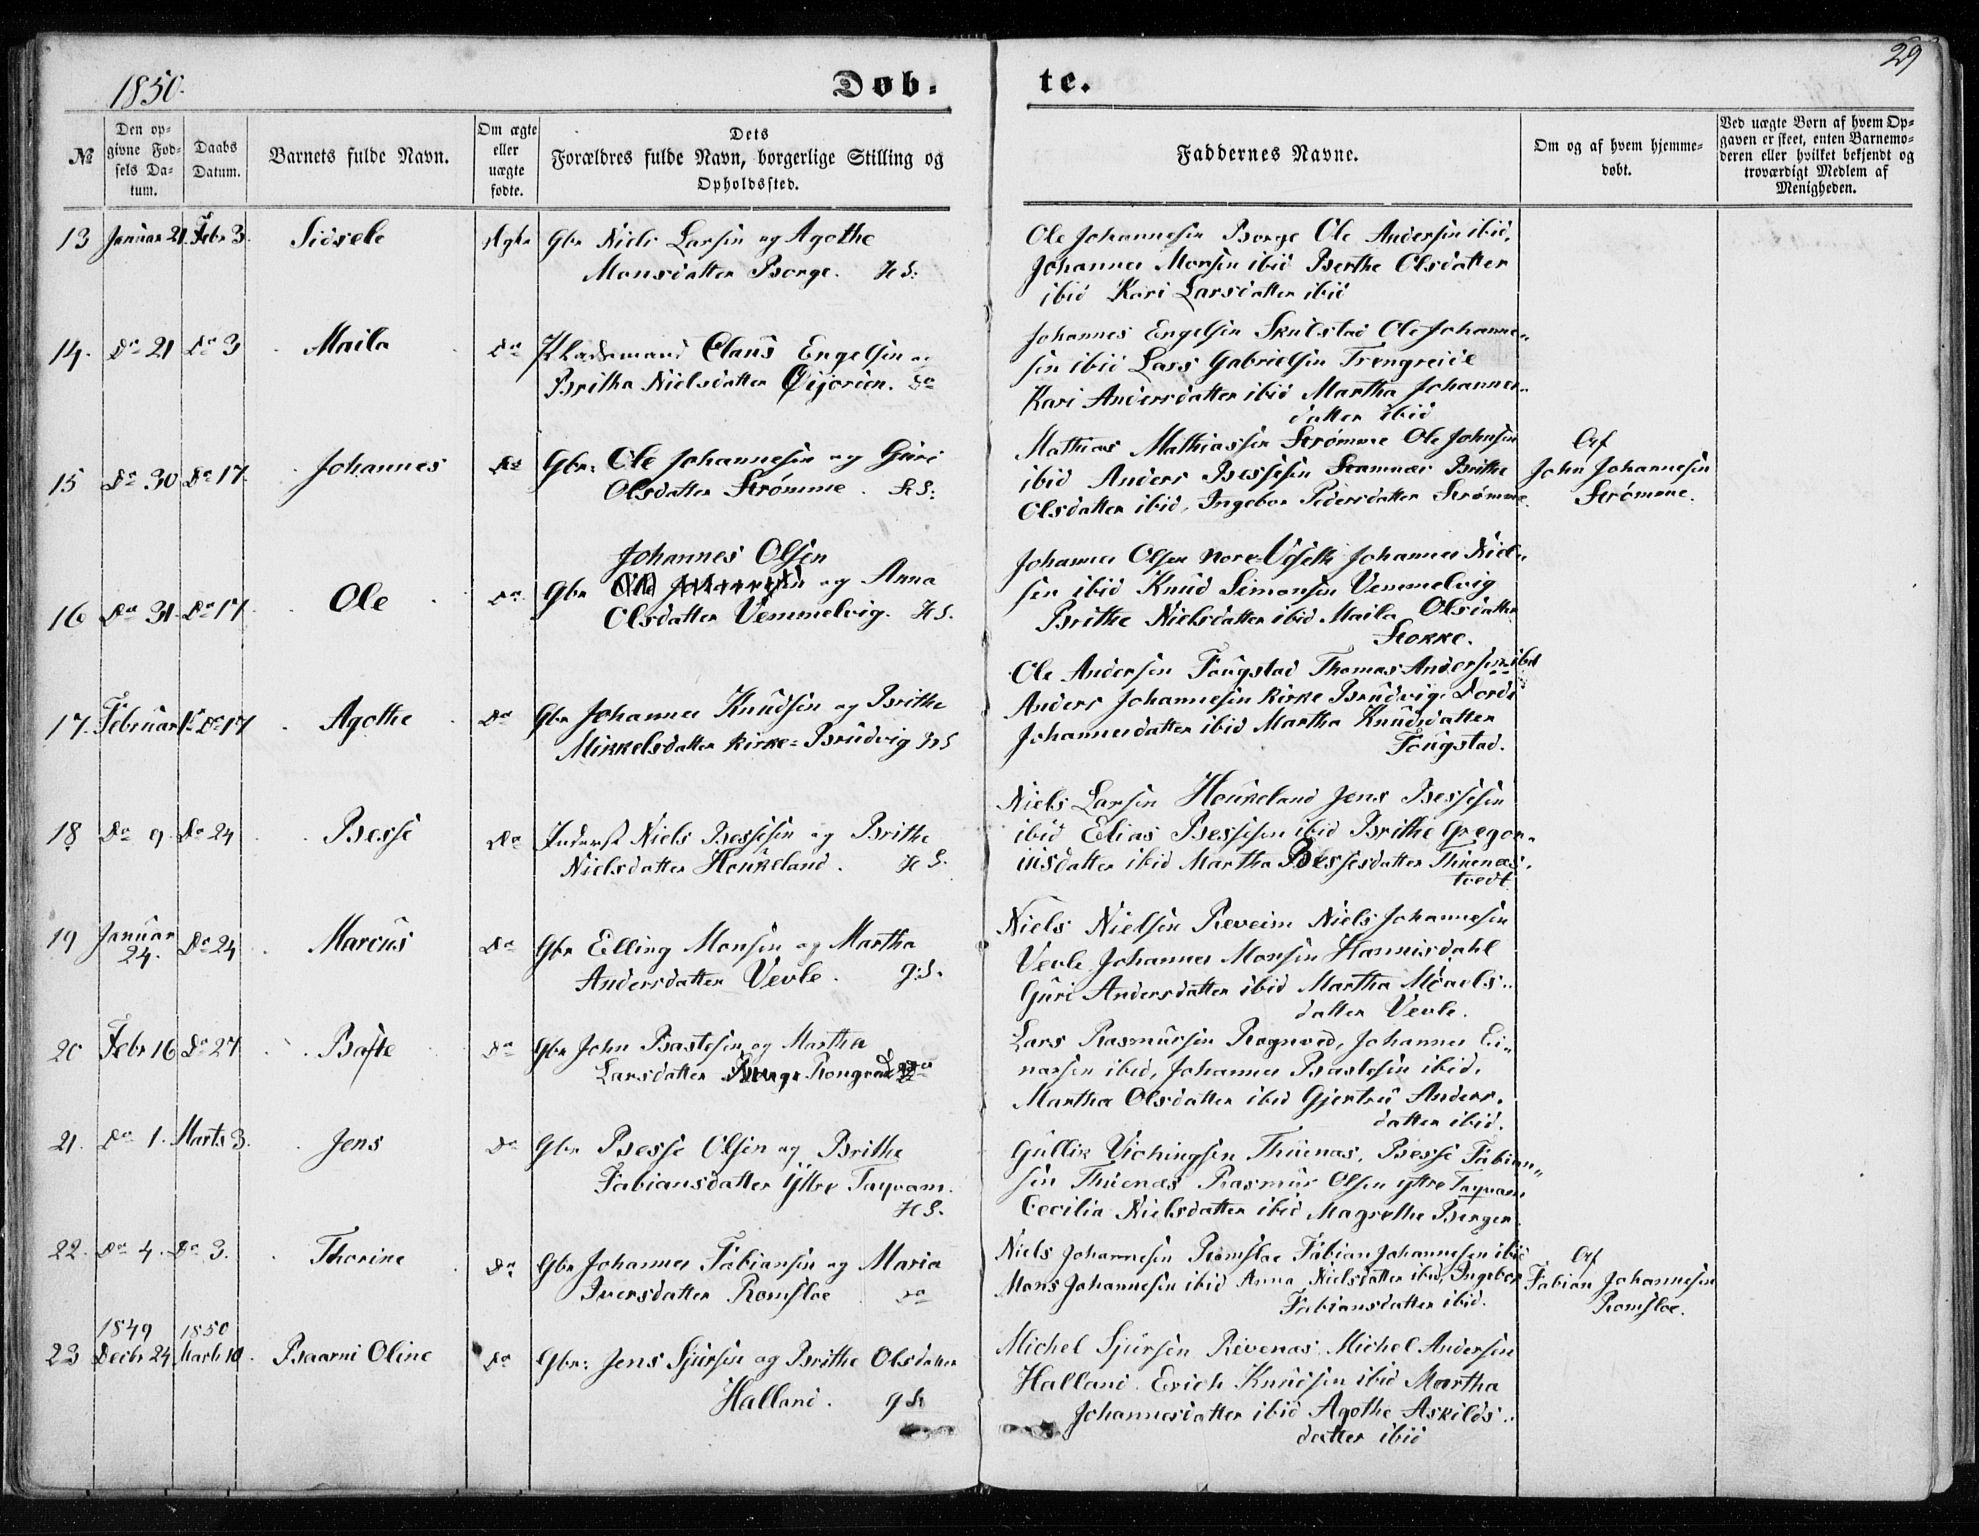 29
1850.
Døb-
te.
№
Den op-
givne Fød-
sels Da-
tum.
Daabs
Datum.
Barnets fulde Navn.
Om ægte
eller
uægte
fødte.
Dets
Forældres fulde Navn, borgerlige Stilling og
Opholdssted.
Faddernes Navne.
Om og af hvem hjemme-
døbt.
Ved uægte Børn af hvem Op-
gaven er skeet, enten Barnemo-
deren eller hvilket bekjendt og
troværdigt Medlem af
Menigheden.
13 Januar 21. Febr 3. Sidsele Ægte Gbr Niels Larsen og Agothe
Monsdatter Borge. HS:
Ole Johannesen Borge Ole Andersen ibid,
Johannes Monsen ibid Berthe Olsdatter
ibid Kari Larsdatter ibid
14. Do 21 Do 3 Maila Do Claus Engelsen og
Britha Nielsdatter Øijorden. Do
Johannes Engelsen Skulstad Ole Johanne-
sen ibid Lars Gabrielsen Trengreide
Kari Andersdatter ibid Martha Johannes-
datter ibid
15 Do 30 Do 17. Johannes Do Gbr: Ole Johannesen og Guri
Olsdatter Strømme. St S:
Mathias Mathiassen Strømme Ole Johnsen
ibid Anders Bessesen Stamnes Brithe
Olsdatter ibid, Ingebor Pedersdatter Strømme.
Af
John Johannesen
Strømme.
16 Do 31. Do 17. Ole Do Gbr
Johannes Olsen
og Anna
Olsdatter Vemmelvig. HS.
Johannes Olsen Nore Johannes Niel-
sen ibid Knud Simonsen Vemmelvig
Brithe Nielsdatter ibid Maila Olsdatter
Stokke.
17. Februar 1 Do 17 Agothe Do Gbr Johannes Knudsen og Brithe
Mikkelsdatter Kirke=Brudvig HS
Ole Andersen Fougstad Thomas Andersen ibd
Anders Johannesen Kirke Brudvig. Dordi
Johannesdatter ibid Martha Knudsdatter
Fougstad.
18 Do 9. Do 24 Besse Do Inderst Niels Bessesen og Brithe
Nielsdatter Houkeland. HS.
Niels Larsen Houkeland Jens Bessesen
ibid Elias Bessesen ibid Brithe Gregor-
iusdatter ibid Martha Bessesdatter Thuenæs-
tvedt
19 Januar
24. Do 24 Marcus Do Gbr Elling Monsen og Martha
Andersdatter Vevle. g:S.
Niels Nielsen Reveim Niels Johannesen
Vevle Johannes Monsen Hannisdahl
Guri Andersdatter ibid Martha Micaels-
datter Vevle.
20 Febr 16 Do 27 Baste Do Gbr John Bastesen og Martha
Larsdatter
Lars Rasmussen Rognved, Johannes Ei-
narsen ibid, Johannes Bastesen ibid,
Martha Olsdatter ibid Gjertru Anders-
datter ibid.
21. Do 1. Marts 3. Jens Do Gbr Besse Olsen og Brithe
Fabiansdatter Yttre Tayvam.
HS.
Gullik Vichingsen Thuenæs, Besse Fabian-
sen Thuenæs Rasmus Olsen yttre Tayvam
Cecilia Nielsdatter ibid Magrethe Berger
22. Do 4. Do 3. Thorine Do Gbr Johannes Fabiansen og Maria
Iversdatter Romsloe Do
Niels Johannesen Romsloe Fabian Johannesen ibid
Mons Johannesen ibid Anna Nielsdatter ibid, Ingebor
Fabiansdatter ibid.
Af
Fabian Johannesen
Romsloe.
1849 1850
23 Decbr 24. Marts 10. Baarni Oline Do Gbr: Jens Sjursen og Brithe Olsdatter
Halland. g S
Michel Sjursen Revenæs Michel Andersen
Halland. Erich Knudsen ibid Martha
Johannesdatter ibid Agothe Askilds-
datter ibid